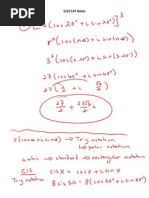 5/13 CAT Notes
[(cos20° + i sin20°)]³
r^n (cos(nθ) + i sin(nθ))
3³ (cos(3·20°) + i sin(3·20°))
27 (cos60° + i sin60°)
27 (1/2 + i √3/2)
27/2 + 27√3/2 i
r(cosθ + i sinθ) → Trig notation
a+bi → standard → rectangular notation
CIS cis x = cos x + i sin x
Trig notation 8 cis 30 = 8(cos30° + i sin30°)